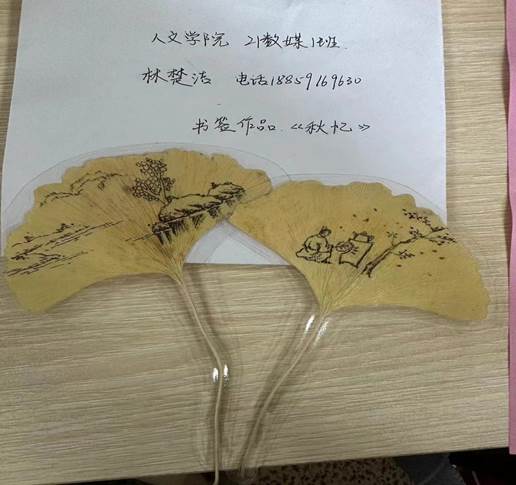 人文学院 21数媒1班
林楚洁 电话18859169630
书签作品《秋忆》